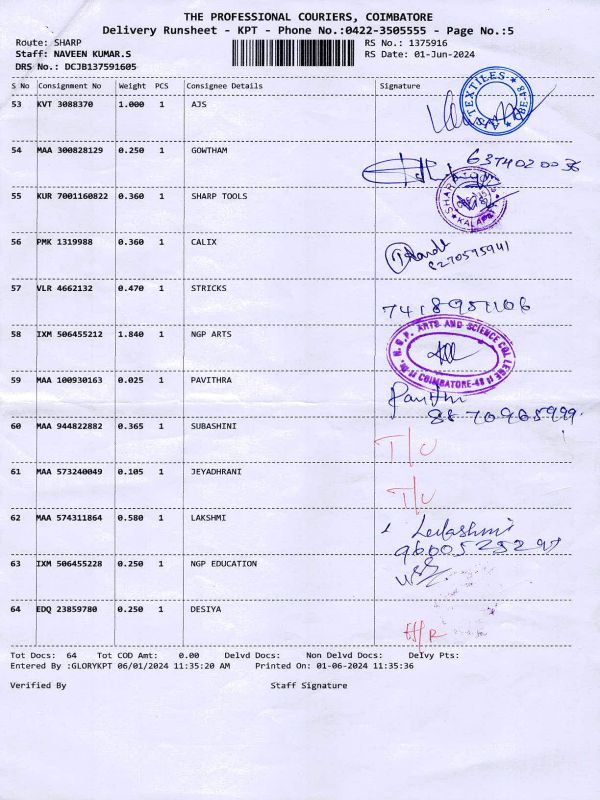 THE PROFESSIONAL COURIERS, COIMBATORE
Delivery Runsheet - KPT - Phone No.:0422-3505555 - Page No.:5
Route: SHARP RS No.: 1375916
Staff: NAVEEN KUMAR.S RS Date: 01-Jun-2024
DRS No.: DCJB137591605
S No Consignment No Weight PCS Consignee Details Signature
53 KVT 3088370 1.000 1 AJS
TEXTILES
54 MAA 300828129 0.250 1 GOWTHAM 6374020036
55 KUR 7001160822 0.360 1 SHARP TOOLS
56 PMK 1319988 0.360 1 CALIX
57 VLR 4662132 0.470 1 STRICKS 7418951106
58 IXM 506455212 1.840 1 NGP ARTS
Dr. N.G.P. ARTS AND SCIENCE COLLEGE
COIMBATORE-48
59 MAA 100930163 0.025 1 PAVITHRA
60 MAA 944822882 0.365 1 SUBASHINI T/U
61 MAA 573240049 0.105 1 JEYADHRANI T/U
62 MAA 574311864 0.580 1 LAKSHMI
63 IXM 506455228 0.250 1 NGP EDUCATION
64 EDQ 23859780 0.250 1 DESIYA
Tot Docs: 64 Tot COD Amt: 0.00 Delvd Docs: Non Delvd Docs: Delvy Pts:
Entered By :GLORYKPT 06/01/2024 11:35:20 AM Printed On: 01-06-2024 11:35:36
Verified By Staff Signature